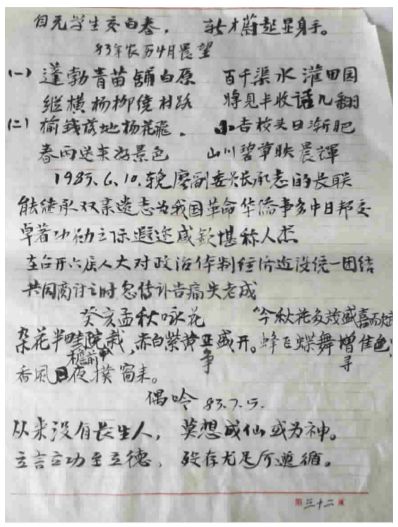 自无学生交白卷， 新才蔚起显身手。
83年农历4月晨望
(一) 蓬勃青苗铺白原 百千渠水灌田园
纵横杨柳绕村跃 将见丰收话几翻
(二) 榆钱落地杨花飞， 小杏枝头日渐肥
春雨送来好景色 山川碧草映晨辉
1983.6.10.挽廖副委员长承志的长联
能继承双亲遗志为我国革命华侨事务中日邦交
卓著功勋立际遐迩咸钦堪称人杰
至召开六届人大对政治体制经济建设统一团结
共同商讨之时忽传讣告痛失老成
癸亥孟秋咏花 今秋花多放盛喜而
杂花半畦院栽，赤白紫黄争盛开。蜂飞蝶舞寻佳色，
香风日夜扑窗来。
偶吟 83.7.5.
从来没有长生人， 莫想成仙或为神。
立言立功至立德， 殁存尤足所遵循。
第三十二页